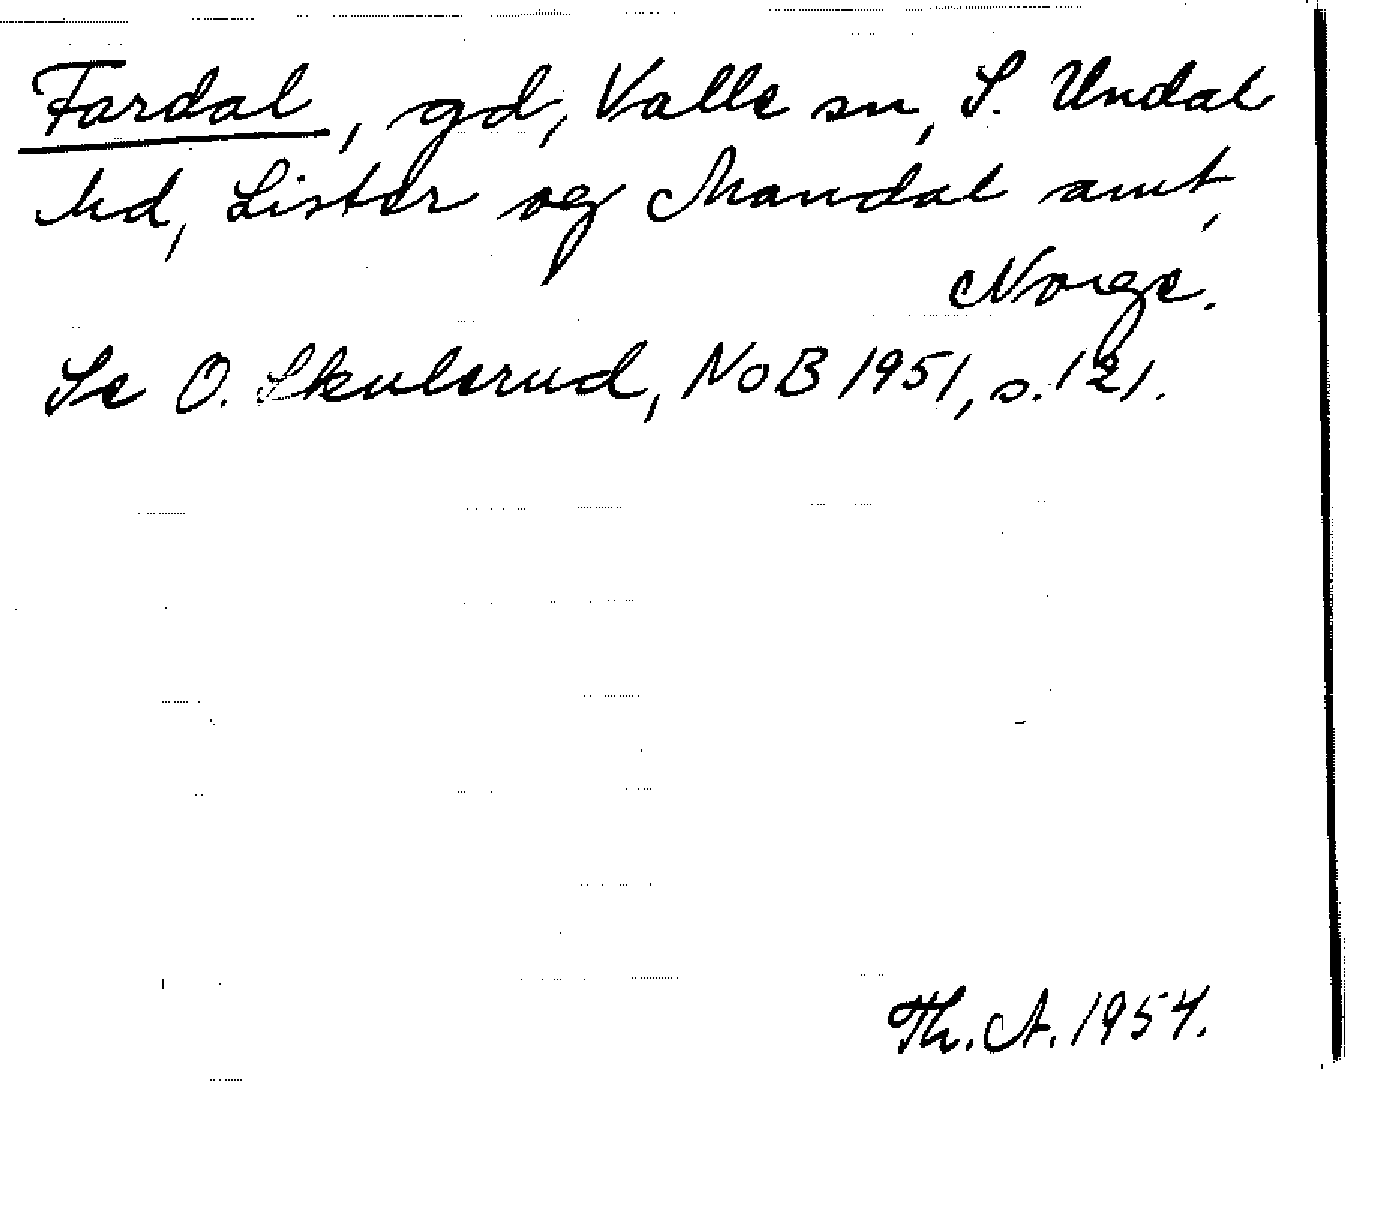 Fardal, gd, Valle sn, S. Undal
hd, Lister og Mandal amt,
Norge.
Se O. Skulerud, NoB 1951, s. 121.
Th. A. 1954.